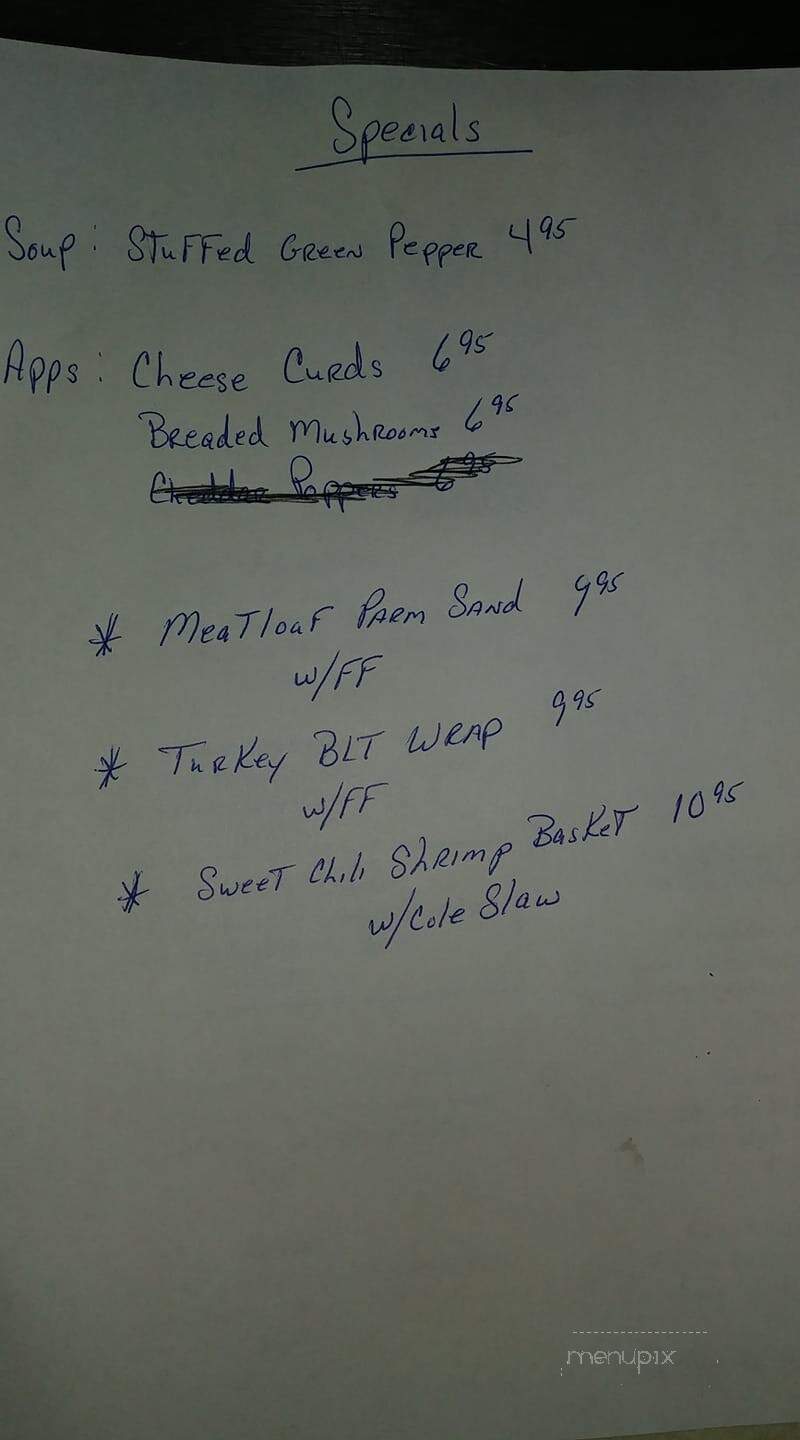 Specials
Soup: Stuffed Green Pepper 4 95
Apps: Cheese Curds 6 95
Breaded Mushrooms 6 95
Cheddar Poppers 6 95
* Meatloaf Parm Sand 9 95
w/FF
* Turkey BLT Wrap 9 95
w/FF
* Sweet Chili Shrimp Basket 10 95
w/Cole Slaw
menupix